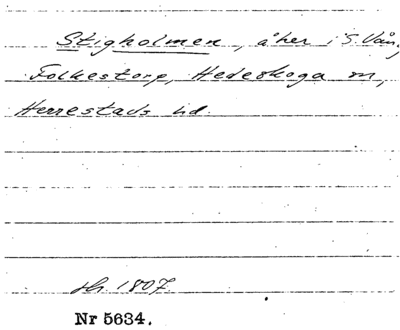 Stigholmen, åker i S. Vång,
Folkestorp, Hedeskoga sn,
Herrestads hd.
1807.
Nr 5634.